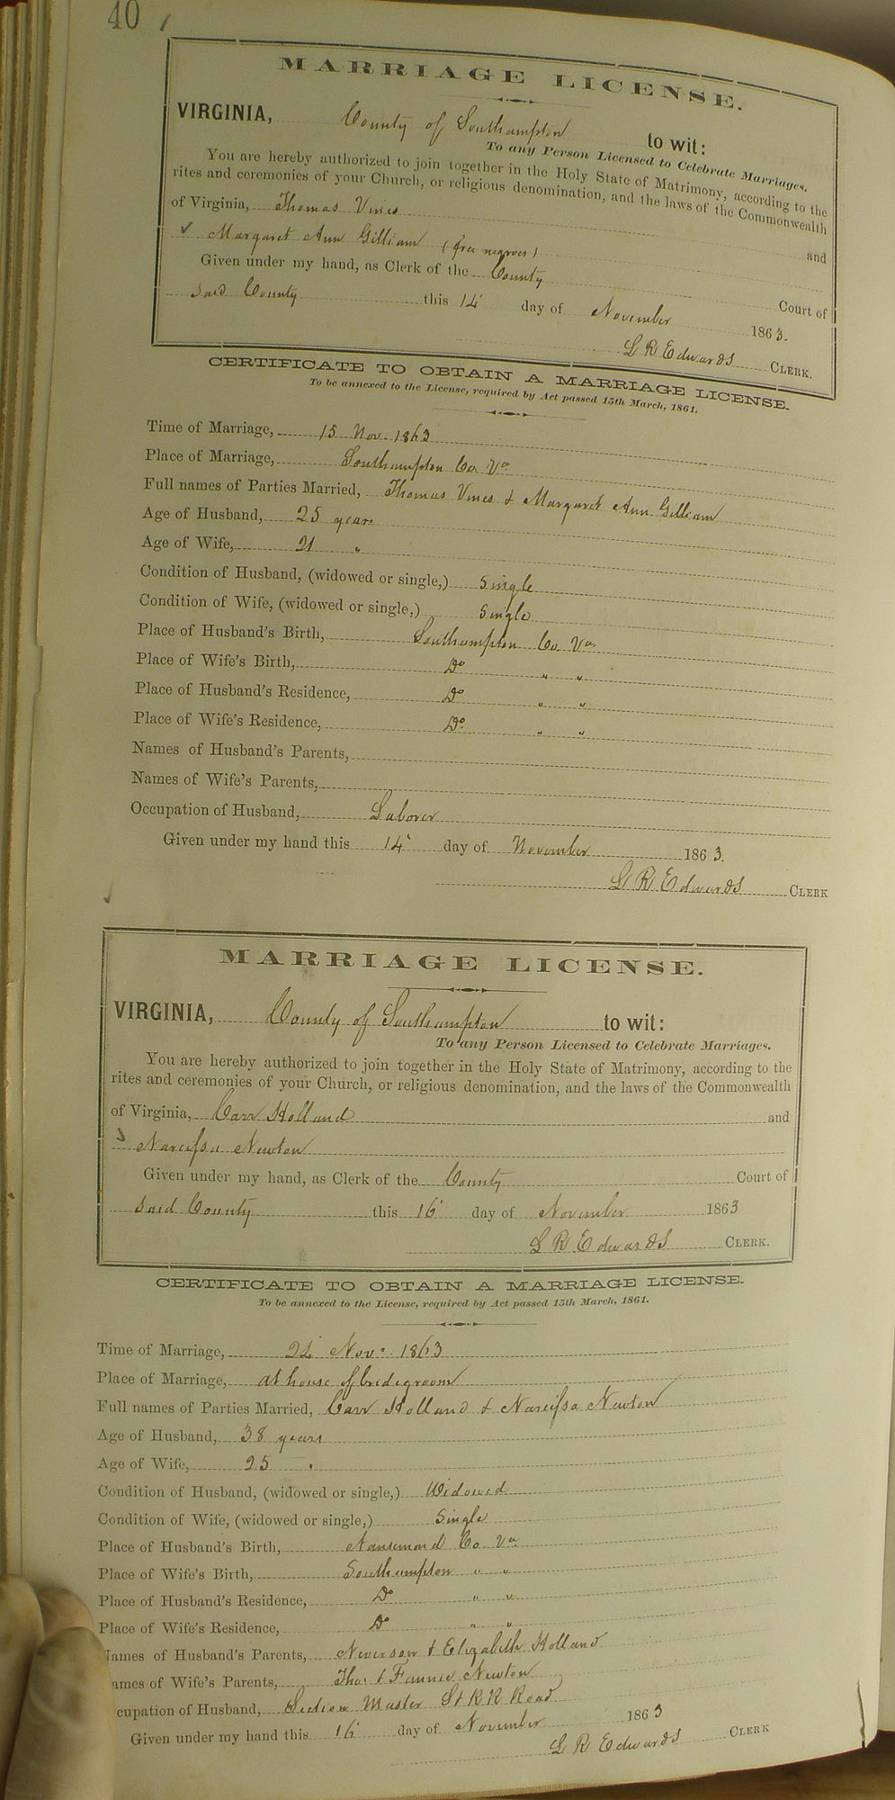 40
MARRIAGE LICENSE.
VIRGINIA, County of Southampton to wit:
To any Person Licensed to Celebrate Marriages.
You are hereby authorized to join together in the Holy State of Matrimony, according to the
rites and ceremonies of your Church, or religious denomination, and the laws of the Commonwealth
of Virginia, Thomas Vines and
Margaret Ann Gilliam (free negroes)
Given under my hand, as Clerk of the County Court of
said County this 14 day of November 1863.
L R Edwards CLERK.
CERTIFICATE TO OBTAIN A MARRIAGE LICENSE.
To be annexed to the License, required by Act passed 15th March, 1861.
Time of Marriage, 15 Nov. 1863
Place of Marriage, Southampton Co Va
Full names of Parties Married, Thomas Vines & Margaret Ann Gilliam
Age of Husband, 25 years
Age of Wife, 21 "
Condition of Husband, (widowed or single,) Single
Condition of Wife, (widowed or single,) Single
Place of Husband's Birth, Southampton Co Va
Place of Wife's Birth, Do " "
Place of Husband's Residence, Do " "
Place of Wife's Residence, Do " "
Names of Husband's Parents,
Names of Wife's Parents,
Occupation of Husband, Laborer
Given under my hand this 14 day of November 1863.
L R Edwards CLERK
MARRIAGE LICENSE.
VIRGINIA, County of Southampton to wit:
To any Person Licensed to Celebrate Marriages.
You are hereby authorized to join together in the Holy State of Matrimony, according to the
rites and ceremonies of your Church, or religious denomination, and the laws of the Commonwealth
of Virginia, Carr Holland and
Narcissa Newton
Given under my hand, as Clerk of the County Court of
said County this 16 day of November 1863
L R Edwards CLERK.
CERTIFICATE TO OBTAIN A MARRIAGE LICENSE.
To be annexed to the License, required by Act passed 15th March, 1861.
Time of Marriage, 24 Nov. 1863
Place of Marriage, at house of bridegroom
Full names of Parties Married, Carr Holland & Narcissa Newton
Age of Husband, 38 years
Age of Wife, 25 "
Condition of Husband, (widowed or single,) Widowed
Condition of Wife, (widowed or single,) Single
Place of Husband's Birth, Nansemond Co Va
Place of Wife's Birth, Southampton " "
Place of Husband's Residence, Do " "
Place of Wife's Residence, Do " "
ames of Husband's Parents, & Elizabeth Holland
ames of Wife's Parents, Thos & Fannie Newton
cupation of Husband, Section Master R R Road
Given under my hand this 16 day of November 1863
L R Edwards CLERK